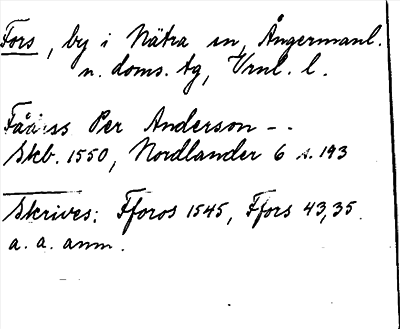 Fors, by i Nätra sn, Ångermanl.
n. doms. tg, Vrnl. l.
Fåårss Per Anderson - -
Skb. 1550, Nordlander 6 s. 193
Skrives: Fforos 1545, Ffors 43,35
a. a. anm.